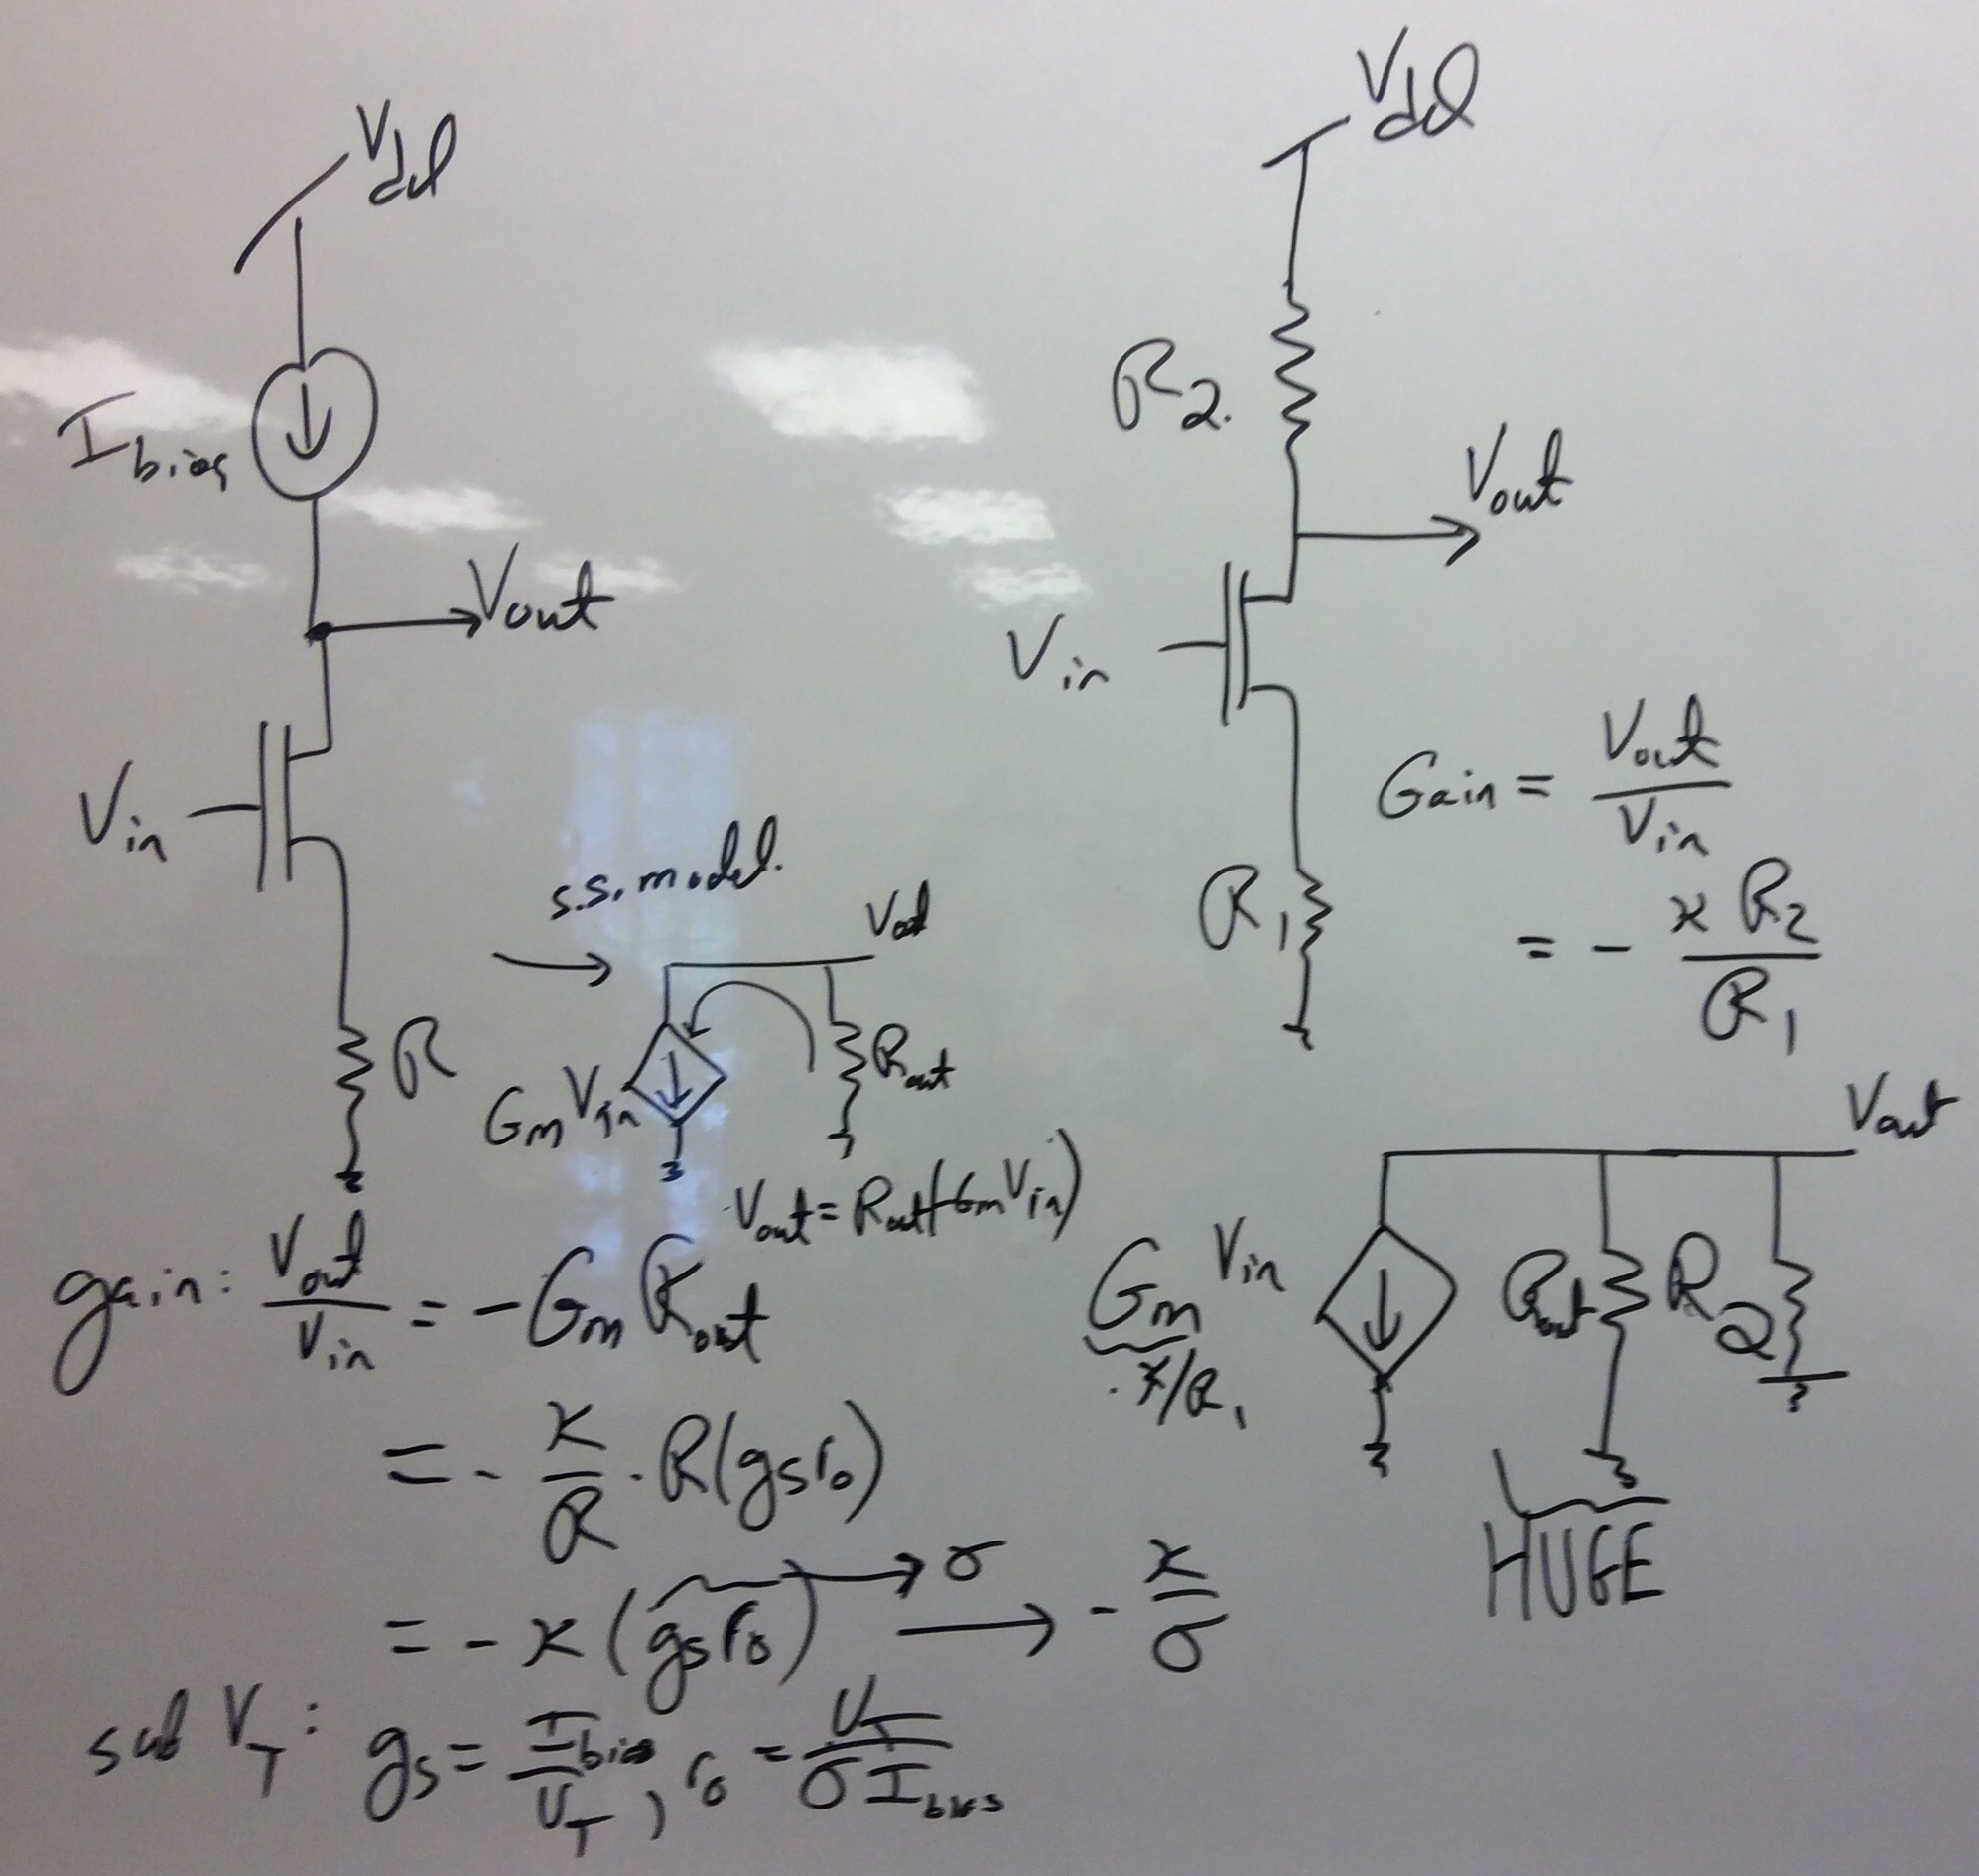 Vdd
Ibias
Vout
Vin
R
s.s. model.
Vout
GmVin
Rout
Vout = Rout(-GmVin)
gain: Vout/Vin = -Gm Rout
= - κ/R · R(gsro)
= - κ(gsro) → σ → - κ/σ
sub VT: gs = Ibias/UT, ro = UT/σIbias
Vdd
R2
Vout
Vin
R1
Gain = Vout/Vin
= - κR2/R1
Vout
Gm Vin
κ/R1
Rout
R2
HUGE